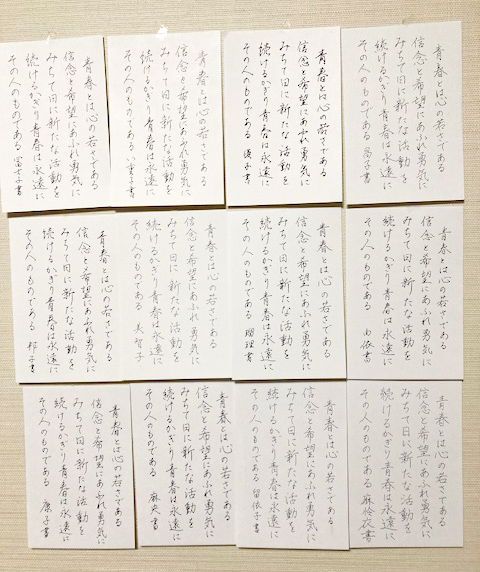 青春とは心の若さである
信念と希望にあふれ勇気に
みちて日に新たな活動を
続けるかぎり青春は永遠に
その人のものである 昌子書
青春とは心の若さである
信念と希望にあふれ勇気に
みちて日に新たな活動を
続けるかぎり青春は永遠に
その人のものである 優子書
青春とは心の若さである
信念と希望にあふれ勇気に
みちて日に新たな活動を
続けるかぎり青春は永遠に
その人のものである
青春とは心の若さである
信念と希望にあふれ勇気に
みちて日に新たな活動を
続けるかぎり青春は永遠に
その人のものである 冨士子書
青春とは心の若さである
信念と希望にあふれ勇気に
みちて日に新たな活動を
続けるかぎり青春は永遠に
その人のものである 由依書
青春とは心の若さである
信念と希望にあふれ勇気に
みちて日に新たな活動を
続けるかぎり青春は永遠に
その人のものである 瑠理書
青春とは心の若さである
信念と希望にあふれ勇気に
みちて日に新たな活動を
続けるかぎり青春は永遠に
その人のものである 美智子
青春とは心の若さである
信念と希望にあふれ勇気に
みちて日に新たな活動を
続けるかぎり青春は永遠に
その人のものである 邦子書
青春とは心の若さである
信念と希望にあふれ勇気に
みちて日に新たな活動を
続けるかぎり青春は永遠に
その人のものである
青春とは心の若さである
信念と希望にあふれ勇気に
みちて日に新たな活動を
続けるかぎり青春は永遠に
その人のものである 留依書
青春とは心の若さである
信念と希望にあふれ勇気に
みちて日に新たな活動を
続けるかぎり青春は永遠に
その人のものである 麻央書
青春とは心の若さである
信念と希望にあふれ勇気に
みちて日に新たな活動を
続けるかぎり青春は永遠に
その人のものである 康子書